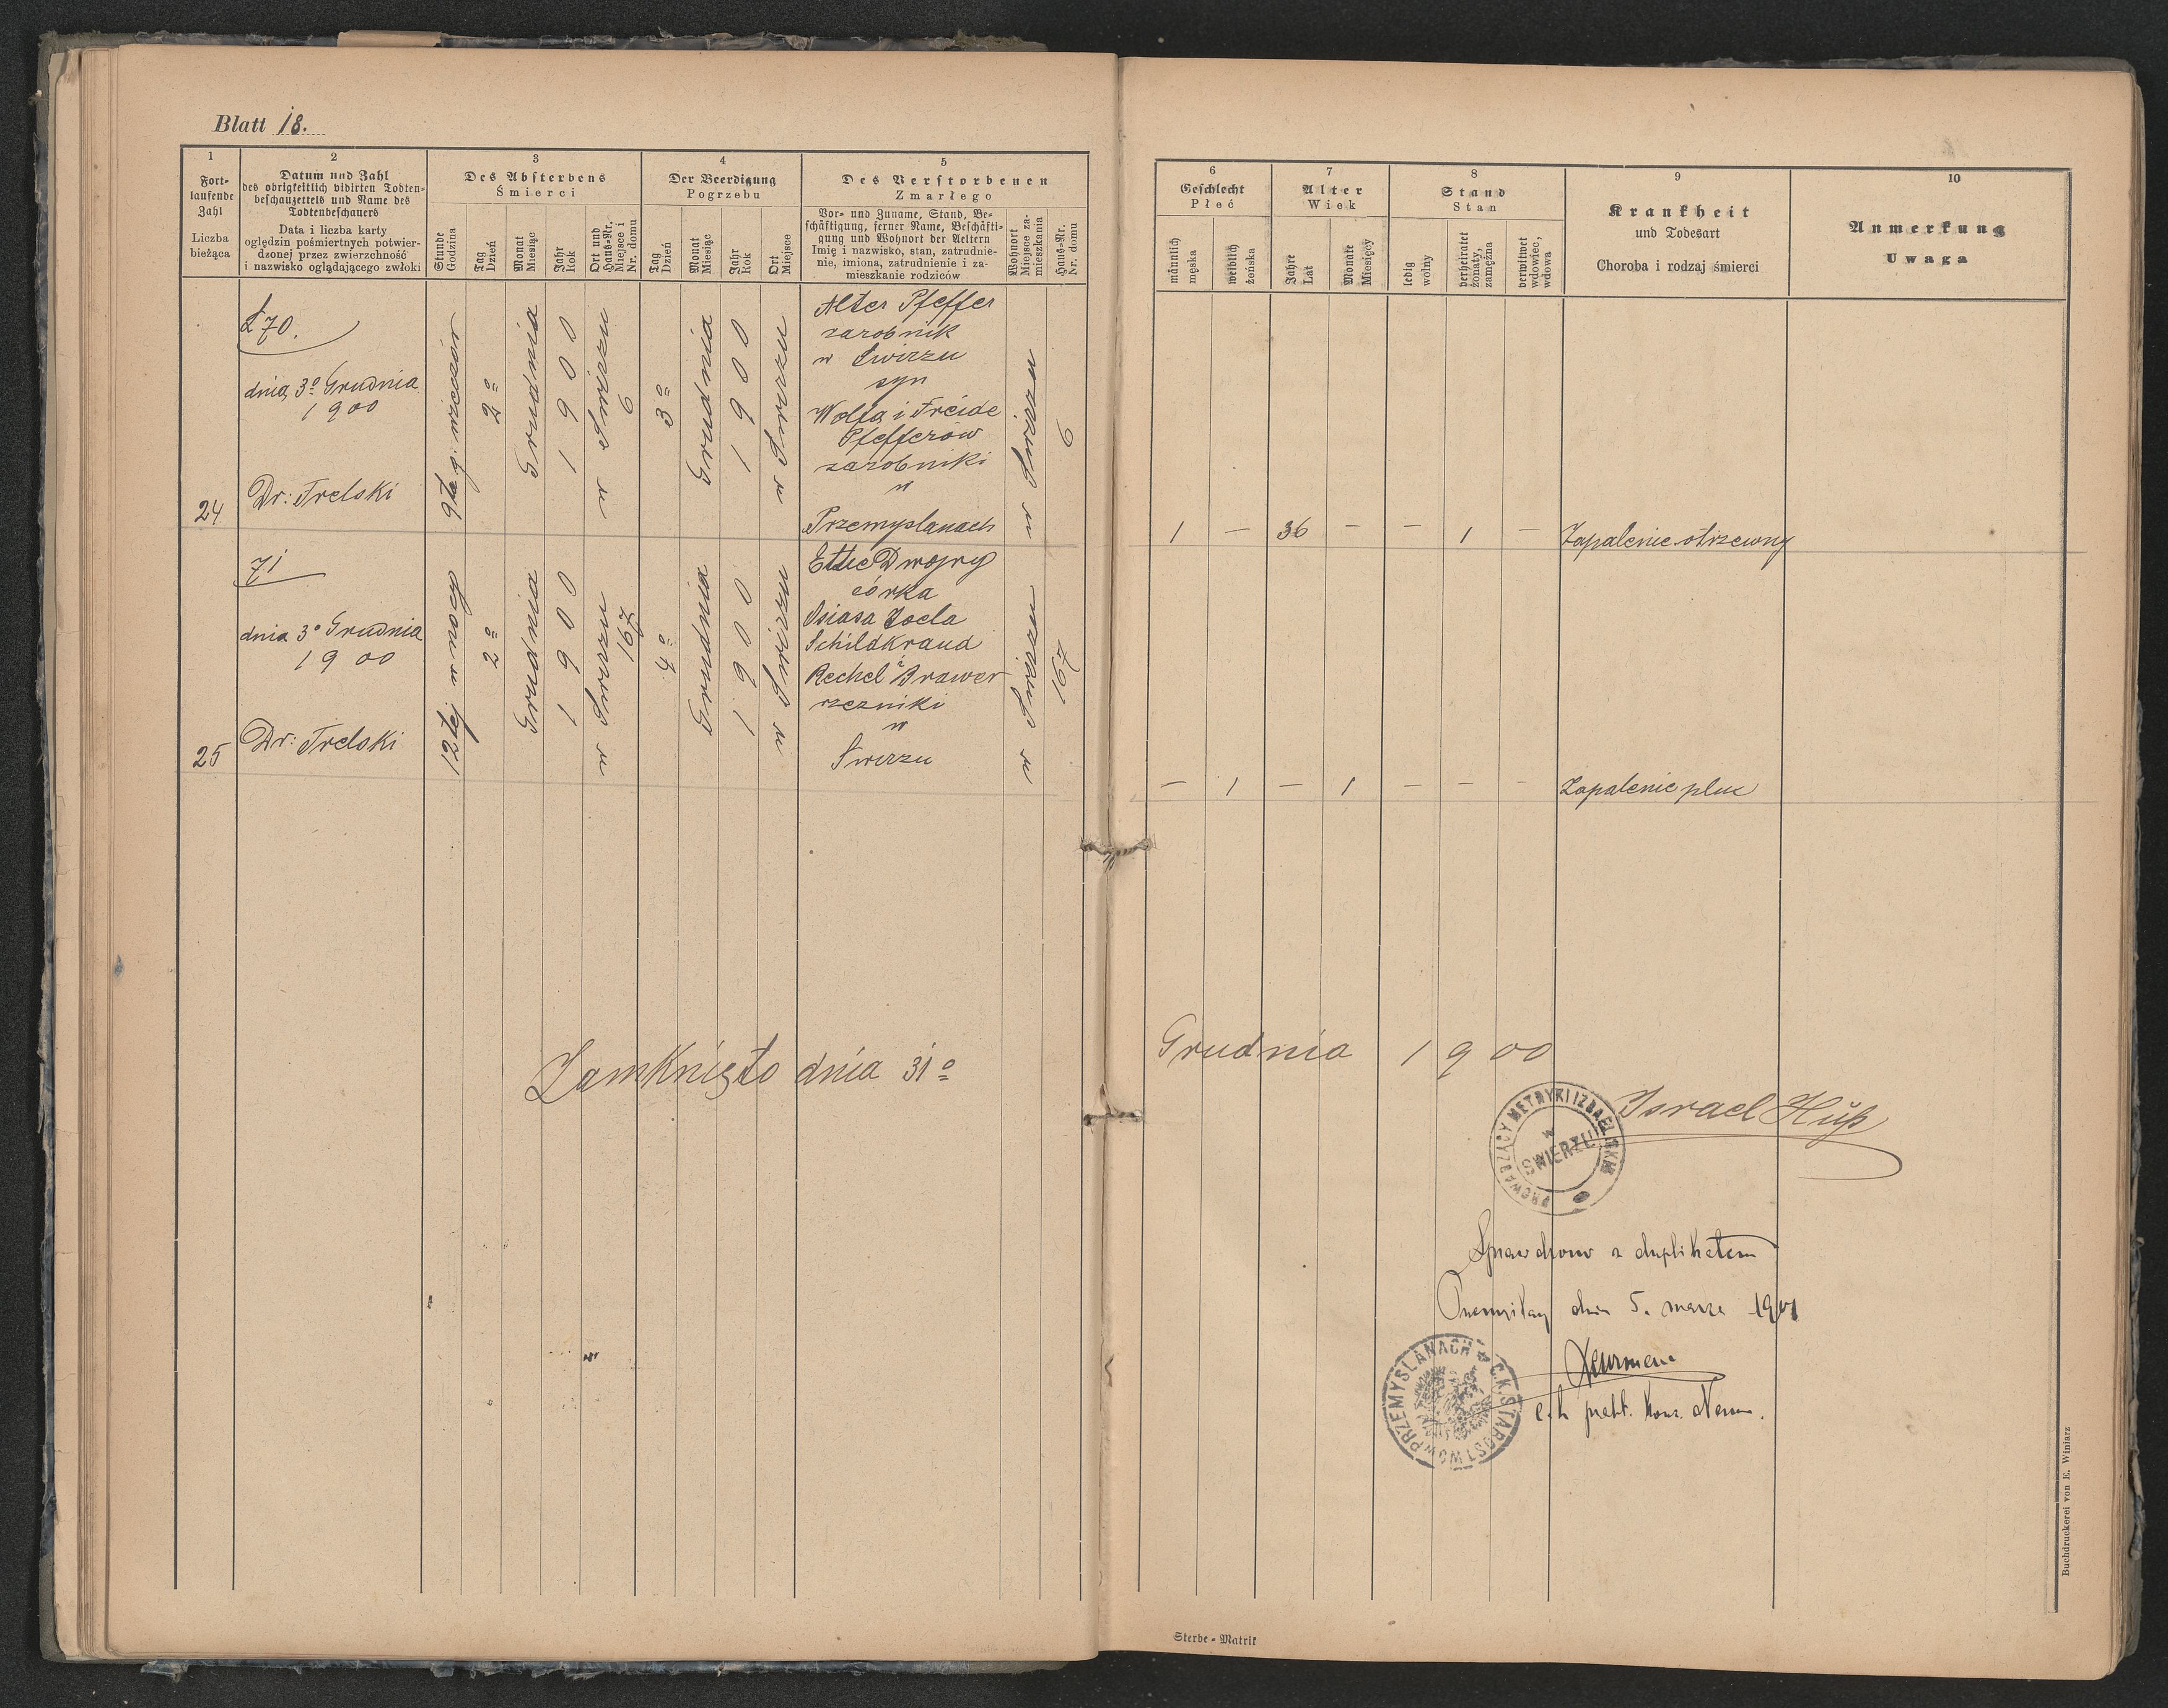 Blatt 18.
1
Fort-
laufende
Zahl
Liczba
bieżąca
2
Datum und Zahl
des obrigkeitlich vidirten Todten-
beschauzettels und Name des
Todtenbeschauers
Data i liczba karty
oględzin pośmiertnych potwier-
dzonej przez zwierzchność
i nazwisko oglądającego zwłoki
3
Des Absterbens
Śmierci
Stunde
Godzina
Tag
Dzień
Monat
Miesiąc
Jahr
Rok
Ort und
Haus-Nr.
Miejsce i
Nr. domu
4
Der Beerdigung
Pogrzebu
Tag
Dzień
Monat
Miesiąc
Jahr
Rok
Ort
Miejsce
5
Des Verstorbenen
Zmarłego
Vor- und Zuname, Stand, Be-
schäftigung, ferner Name, Beschäfti-
gung und Wohnort der Aeltern
Imię i nazwisko, stan, zatrudnie-
nie, imiona, zatrudnienie i za-
mieszkanie rodziców
Wohnort
Miejsce za-
mieszkania
Haus-Nr.
Nr. domu
6
Geschlecht
Płeć
männlich
męska
weiblich
żeńska
7
Alter
Wiek
Jahre
Lat
Monate
Miesięcy
8
Stand
Stan
ledig
wolny
verheiratet
żonaty,
zamężna
verwitwet
wdowiec,
wdowa
9
Krankheit
und Todesart
Choroba i rodzaj śmierci
10
Anmerkung
Uwaga
24
L 70.
dnia 3º Grudnia
1900
Dr: Trelski
9ta g. wieczór
2º
Grudnia
1900
w Świrzu
6
3º
Grudnia
1900
w Świrzu
Alter Pfeffer
zarobnik
w Świrzu
syn
Wolfa i Freide
Pfefferów
zarobniki
w
Przemyslanach
w Świrzu
6
1 – 36 – – 1 –
Zapalenie otrzewny
25
71
dnia 3º Grudnia
1900
Dr: Trelski
12tej w nocy
2º
Grudnia
1900
w Świrzu
167
4º
Grudnia
1900
w Świrzu
Ettie Dwojry
córka
Osiasa Joela
Schildkraud
i
Rechel Brawer
rzezniki
w
Świrzu
w Świrzu
167
– 1 – 1 – – –
Zapalenie pluc
Zamknięto dnia 31º Grudnia 1900
Israel Hüß
PROWADZĄCY METRYKI IZRAELSKIE
w
ŚWIERZU
z duplikatem
5. marca 1901
C.K. STAROSTWO W PRZEMYSLANACH
Sterbe-Matrik
Buchdruckerei von E. Winiarz